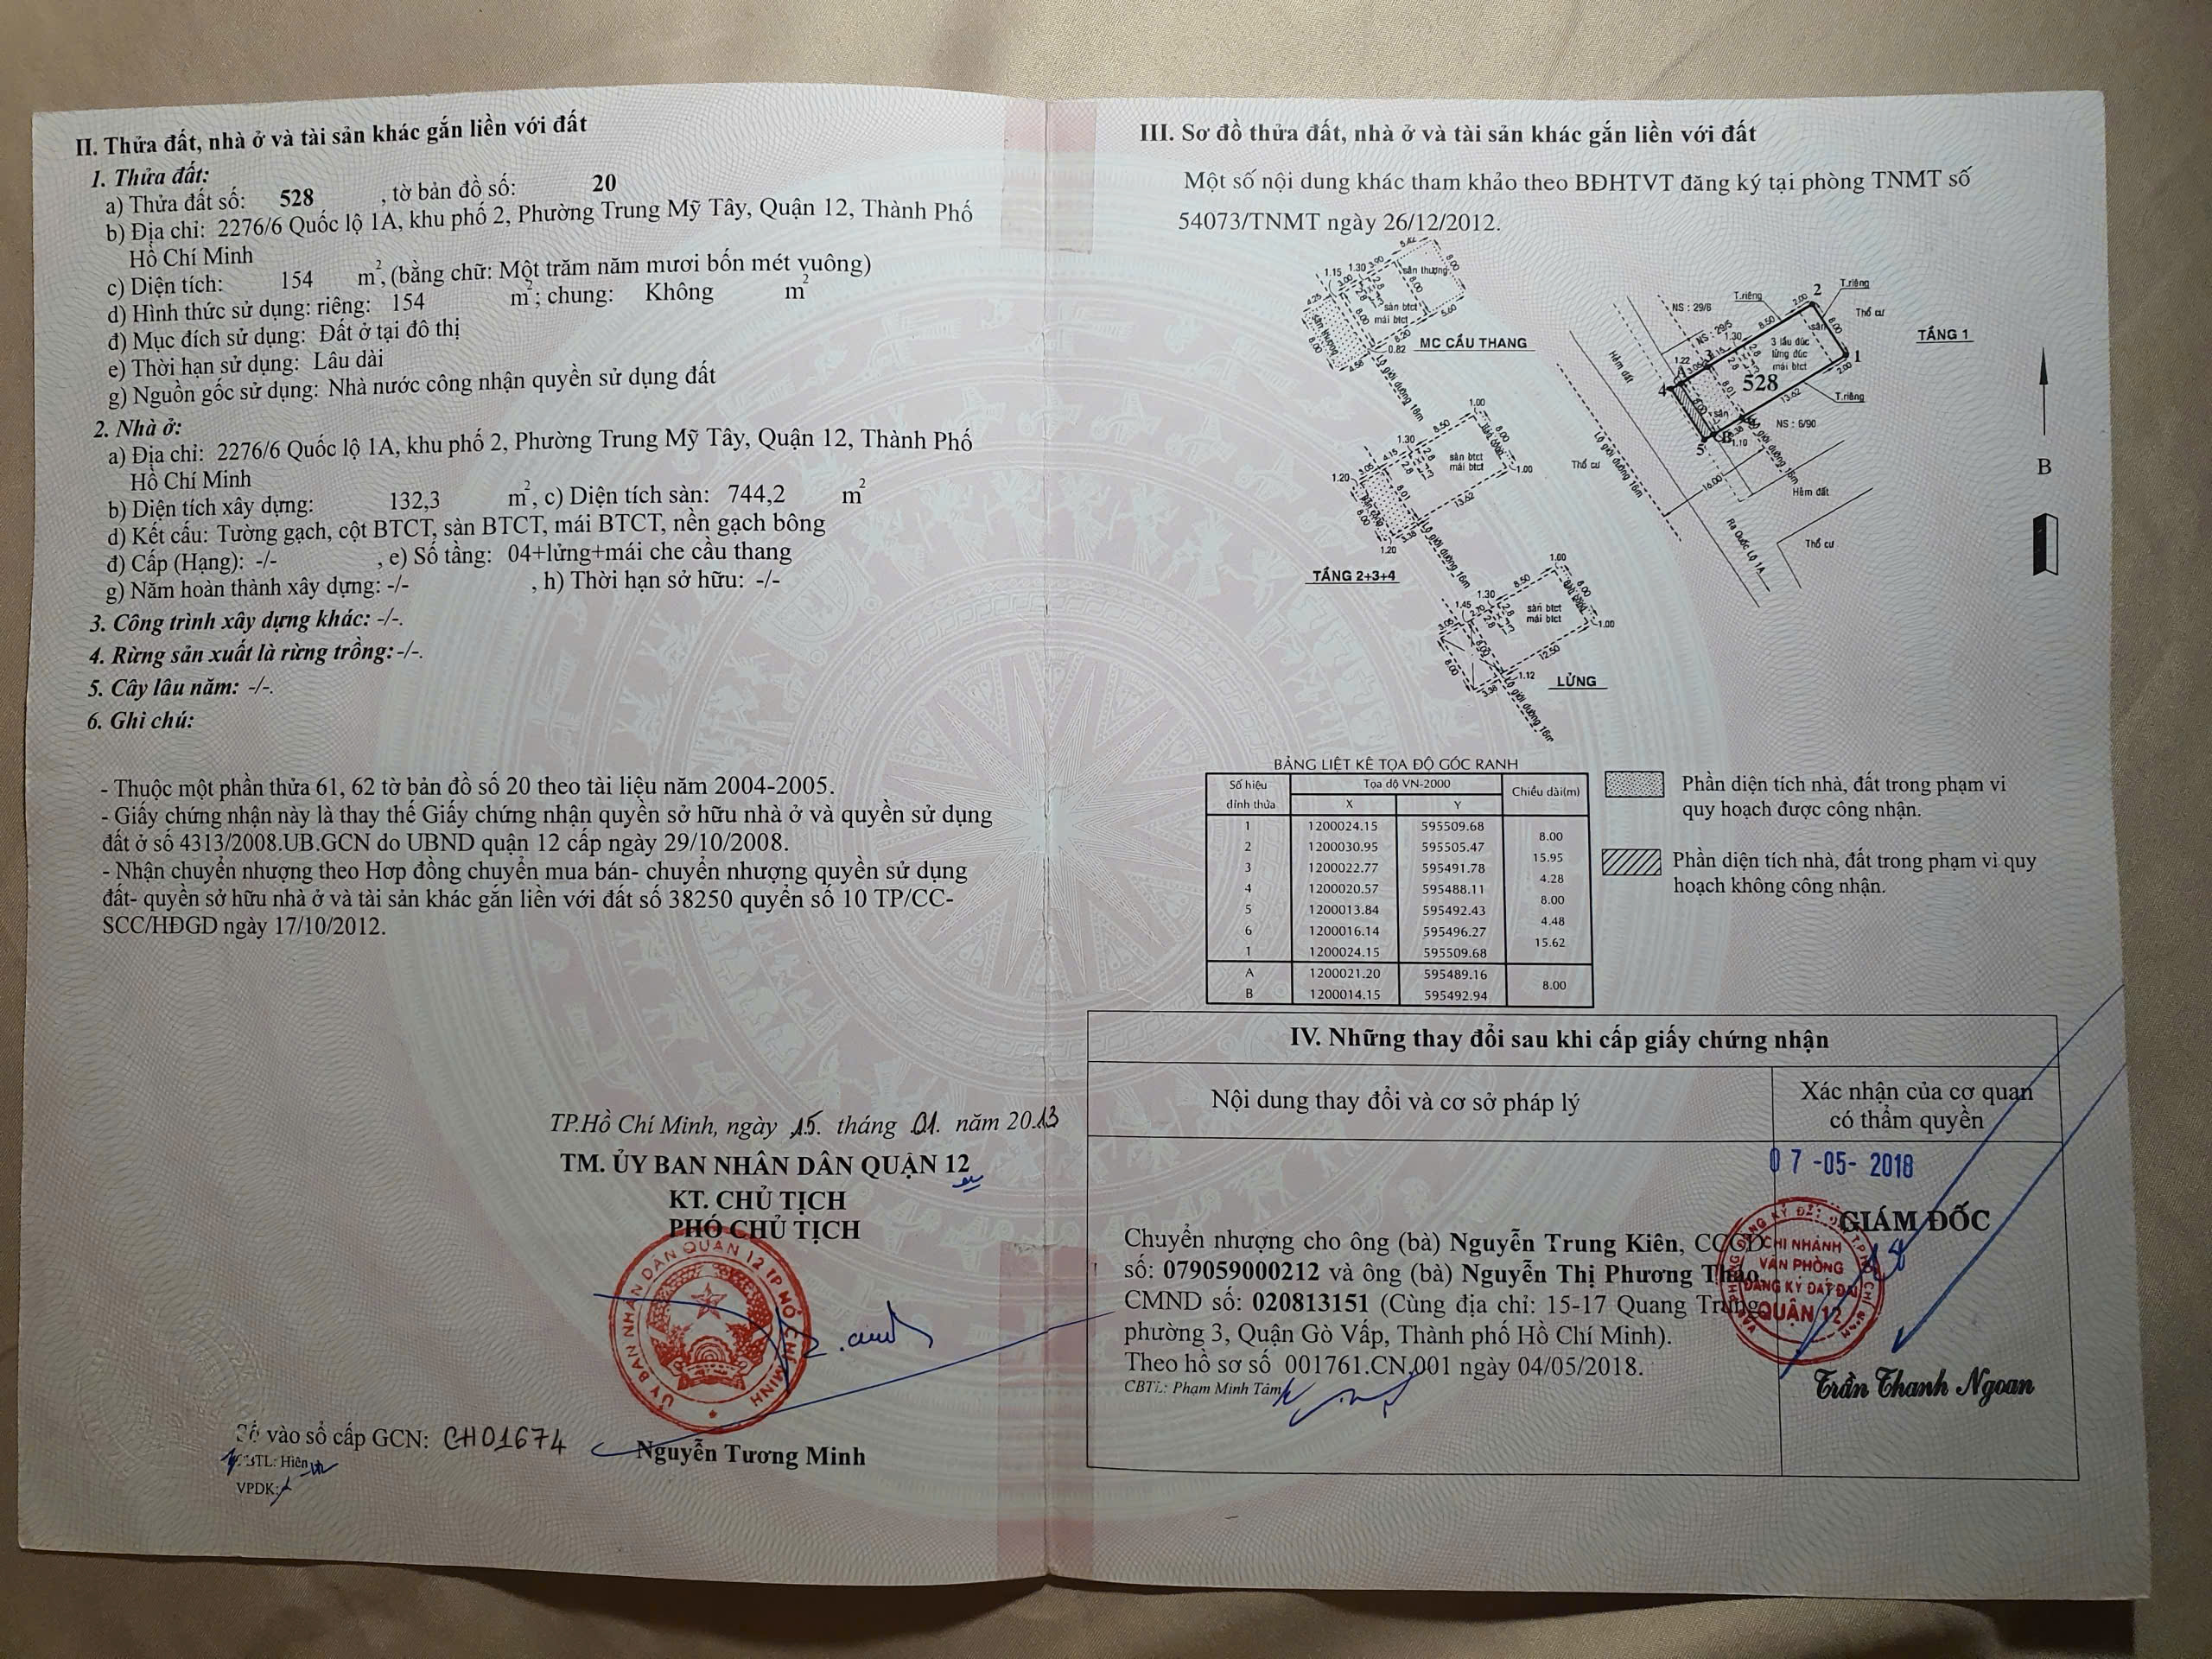 II. Thửa đất, nhà ở và tài sản khác gắn liền với đất
1. Thửa đất:
a) Thửa đất số: 528 , tờ bản đồ số: 20
b) Địa chỉ: 2276/6 Quốc lộ 1A, khu phố 2, Phường Trung Mỹ Tây, Quận 12, Thành Phố
Hồ Chí Minh
c) Diện tích: 154 m², (bằng chữ: Một trăm năm mươi bốn mét vuông)
d) Hình thức sử dụng: riêng: 154 m²; chung: Không m²
đ) Mục đích sử dụng: Đất ở tại đô thị
e) Thời hạn sử dụng: Lâu dài
g) Nguồn gốc sử dụng: Nhà nước công nhận quyền sử dụng đất
2. Nhà ở:
a) Địa chỉ: 2276/6 Quốc lộ 1A, khu phố 2, Phường Trung Mỹ Tây, Quận 12, Thành Phố
Hồ Chí Minh
b) Diện tích xây dựng: 132,3 m², c) Diện tích sàn: 744,2 m²
d) Kết cấu: Tường gạch, cột BTCT, sàn BTCT, mái BTCT, nền gạch bông
đ) Cấp (Hạng): -/- , e) Số tầng: 04+lửng+mái che cầu thang
g) Năm hoàn thành xây dựng: -/- , h) Thời hạn sở hữu: -/-
3. Công trình xây dựng khác: -/-.
4. Rừng sản xuất là rừng trồng:-/-.
5. Cây lâu năm: -/-.
6. Ghi chú:
- Thuộc một phần thửa 61, 62 tờ bản đồ số 20 theo tài liệu năm 2004-2005.
- Giấy chứng nhận này là thay thế Giấy chứng nhận quyền sở hữu nhà ở và quyền sử dụng
đất ở số 4313/2008.UB.GCN do UBND quận 12 cấp ngày 29/10/2008.
- Nhận chuyển nhượng theo Hợp đồng chuyển mua bán- chuyển nhượng quyền sử dụng
đất- quyền sở hữu nhà ở và tài sản khác gắn liền với đất số 38250 quyển số 10 TP/CC-
SCC/HĐGD ngày 17/10/2012.
TP.Hồ Chí Minh, ngày 15. tháng 01. năm 2013
TM. ỦY BAN NHÂN DÂN QUẬN 12
KT. CHỦ TỊCH
PHÓ CHỦ TỊCH
ỦY BAN NHÂN DÂN QUẬN 12 TP HỒ CHÍ MINH
Nguyễn Tương Minh
Số vào sổ cấp GCN: CH01674
CBTL: Hiên
VPDK:
III. Sơ đồ thửa đất, nhà ở và tài sản khác gắn liền với đất
Một số nội dung khác tham khảo theo BĐHTVT đăng ký tại phòng TNMT số
54073/TNMT ngày 26/12/2012.
sân thượng
sàn btct
mái btct
sân thượng
MC CẦU THANG
Lộ giới đường 16m
1.15 1.30 3.90 8.00 5.60 4.25 8.00 0.82 4.58
TẦNG 2+3+4
sàn btct
mái btct
1.00 8.50 8.00 1.00 1.30 4.15 1.20 8.01 13.62 8.00 1.20
Lộ giới đường 16m
LỬNG
sàn btct
mái btct
1.00 8.50 8.00 1.00 1.30 1.45 3.05 12.50 8.00 1.12
Lộ giới đường 16m
TẦNG 1
NS : 29/6
NS : 29/5
T.riêng
T.riêng
T.riêng
Thổ cư
3 lầu đúc
lửng đúc
mái btct
528
sân
sân
NS : 6/90
Hẻm đất
Hẻm đất
Thổ cư
Thổ cư
Lộ giới đường 16m
Lộ giới đường 16m
16.00
Ra Quốc Lộ 1A
B
BẢNG LIỆT KÊ TỌA ĐỘ GÓC RANH
Số hiệu đỉnh thửa Tọa độ VN-2000 Chiều dài(m)
X Y
1 1200024.15 595509.68
8.00
2 1200030.95 595505.47
15.95
3 1200022.77 595491.78
4.28
4 1200020.57 595488.11
8.00
5 1200013.84 595492.43
4.48
6 1200016.14 595496.27
15.62
1 1200024.15 595509.68
A 1200021.20 595489.16
8.00
B 1200014.15 595492.94
Phần diện tích nhà, đất trong phạm vi
quy hoạch được công nhận.
Phần diện tích nhà, đất trong phạm vi quy
hoạch không công nhận.
IV. Những thay đổi sau khi cấp giấy chứng nhận
Nội dung thay đổi và cơ sở pháp lý
Xác nhận của cơ quan
có thẩm quyền
07 -05- 2018
GIÁM ĐỐC
Chuyển nhượng cho ông (bà) Nguyễn Trung Kiên, CCCD
số: 079059000212 và ông (bà) Nguyễn Thị Phương Thảo,
CMND số: 020813151 (Cùng địa chỉ: 15-17 Quang Trung,
phường 3, Quận Gò Vấp, Thành phố Hồ Chí Minh).
Theo hồ sơ số 001761.CN.001 ngày 04/05/2018.
CBTL: Phạm Minh Tâm
CHI NHÁNH
VĂN PHÒNG
ĐĂNG KÝ ĐẤT ĐAI
QUẬN 12
Trần Thanh Ngoan